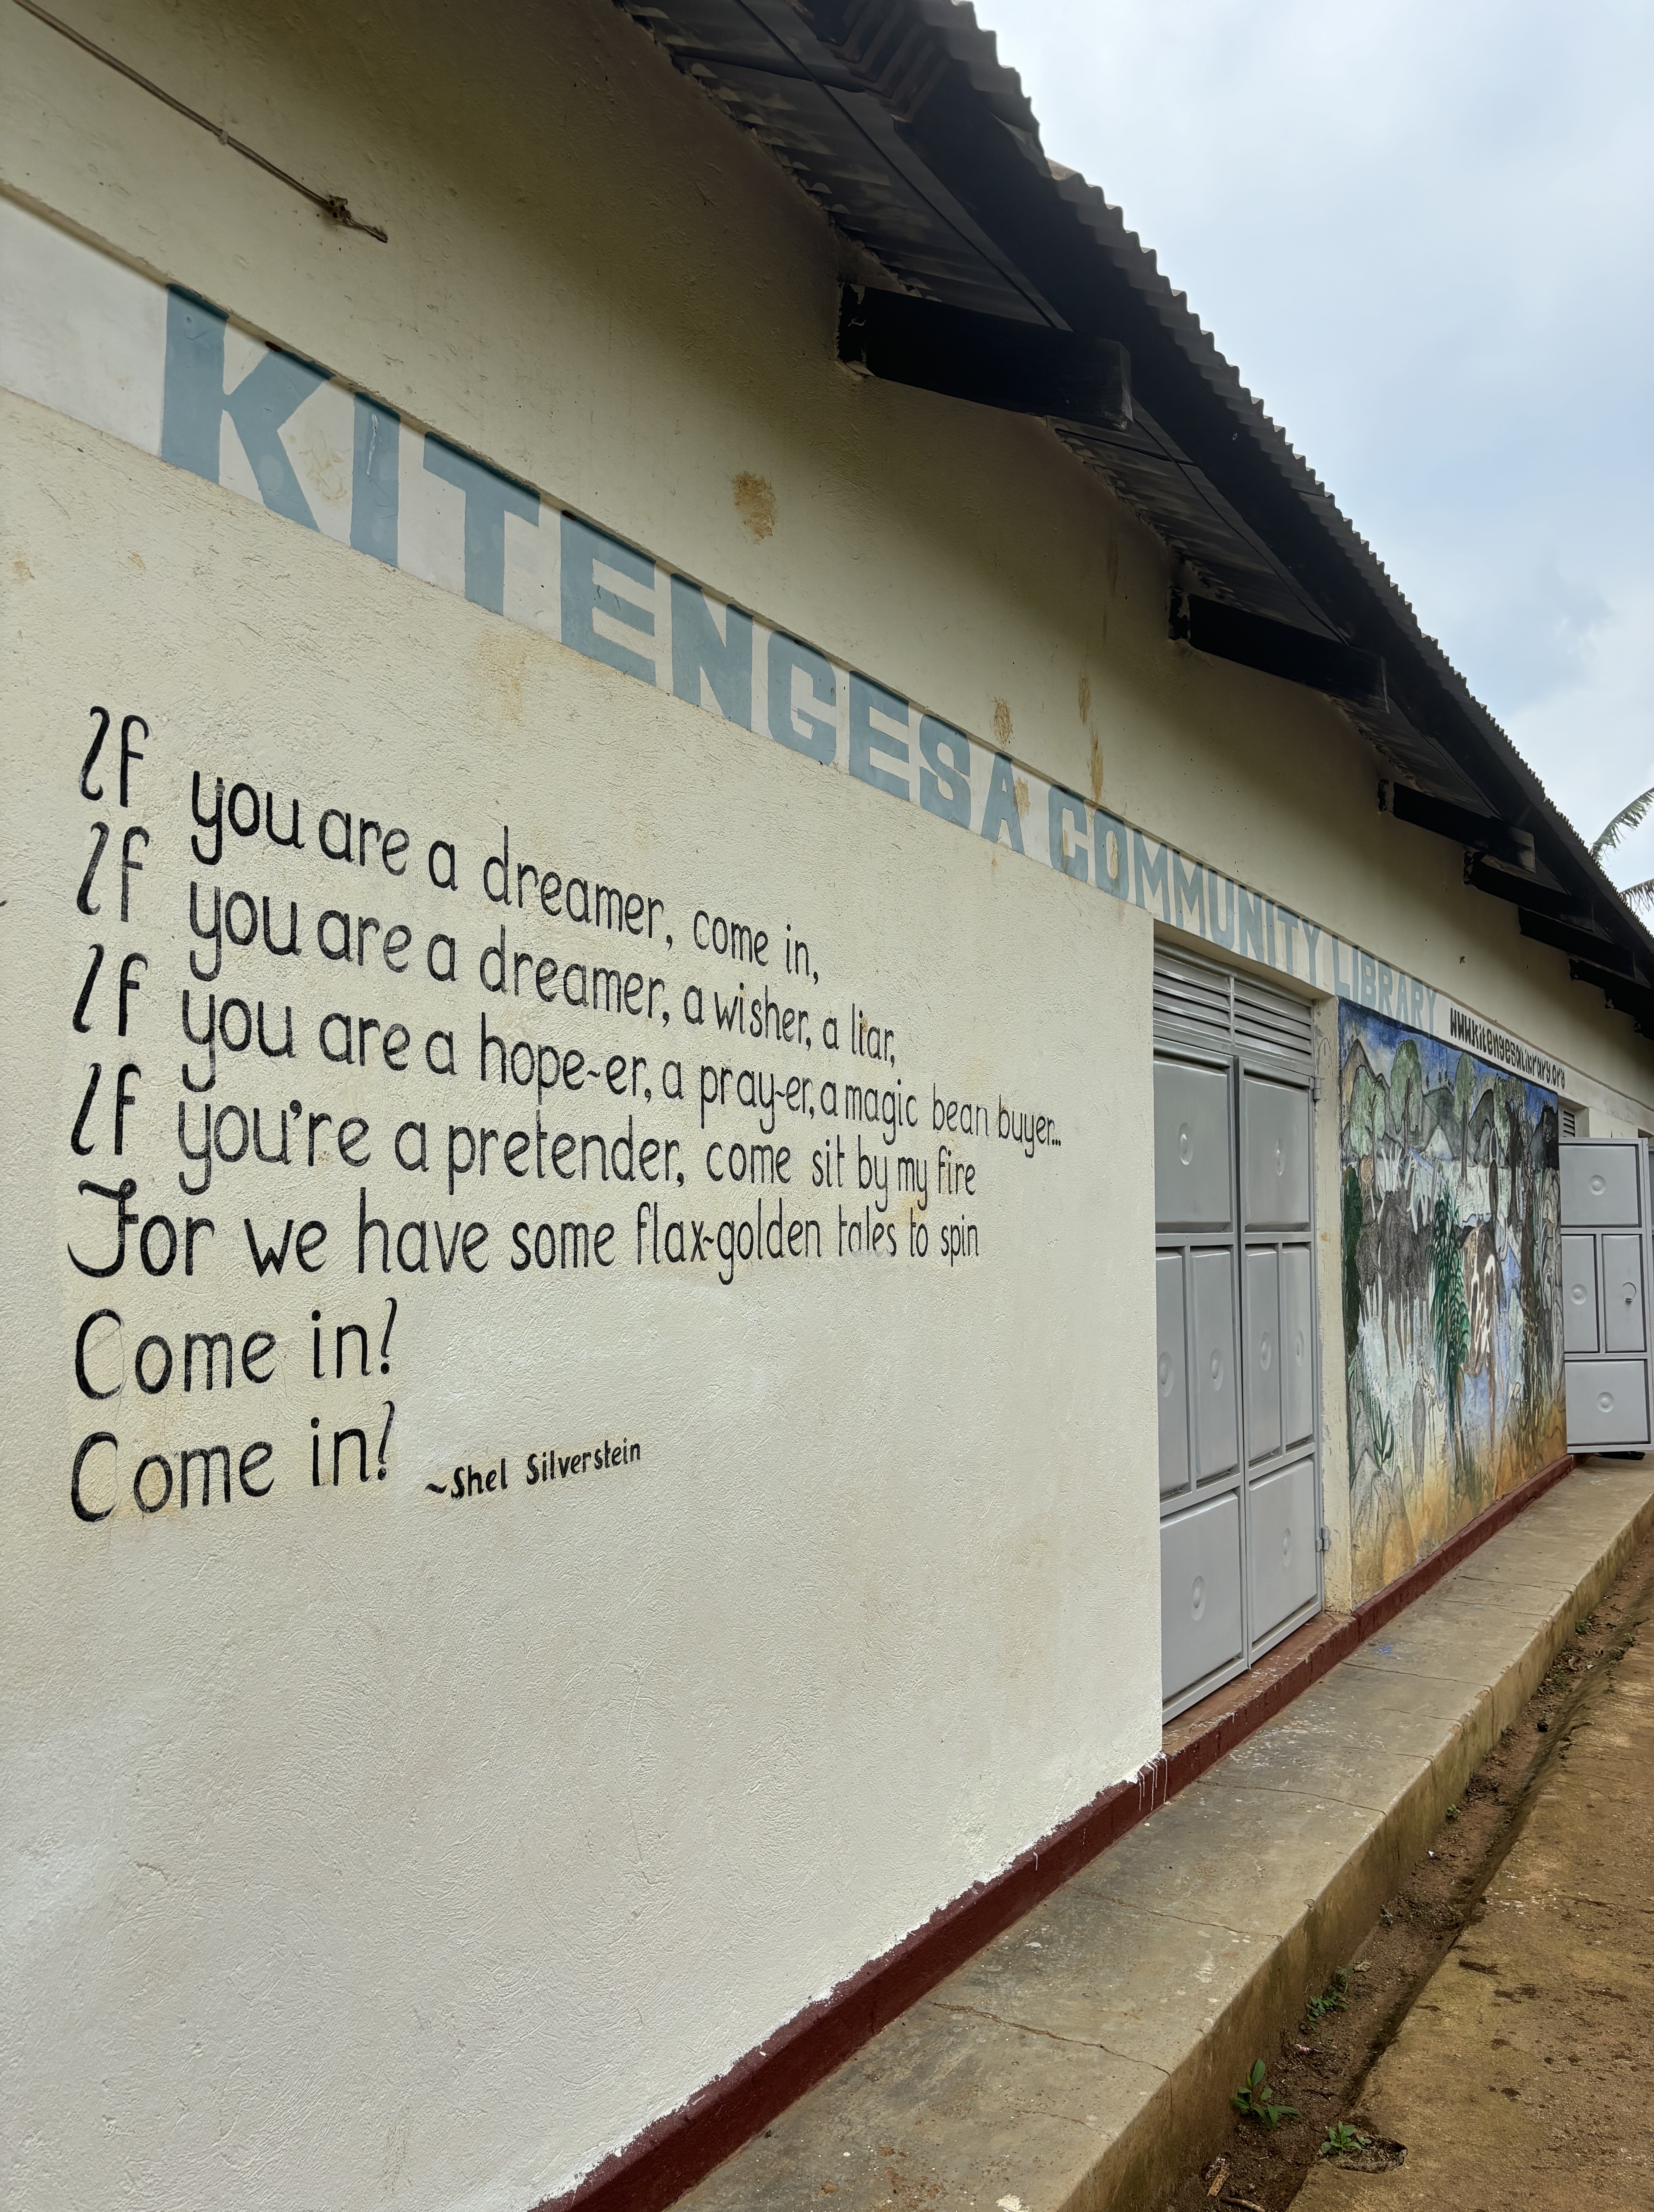 KITENGESA COMMUNITY LIBRARY www.kitengesalibrary.org
If you are a dreamer, come in,
If you are a dreamer, a wisher, a liar,
If you are a hope-er, a pray-er, a magic bean buyer...
If you're a pretender, come sit by my fire
For we have some flax-golden tales to spin
Come in!
Come in!
~Shel Silverstein